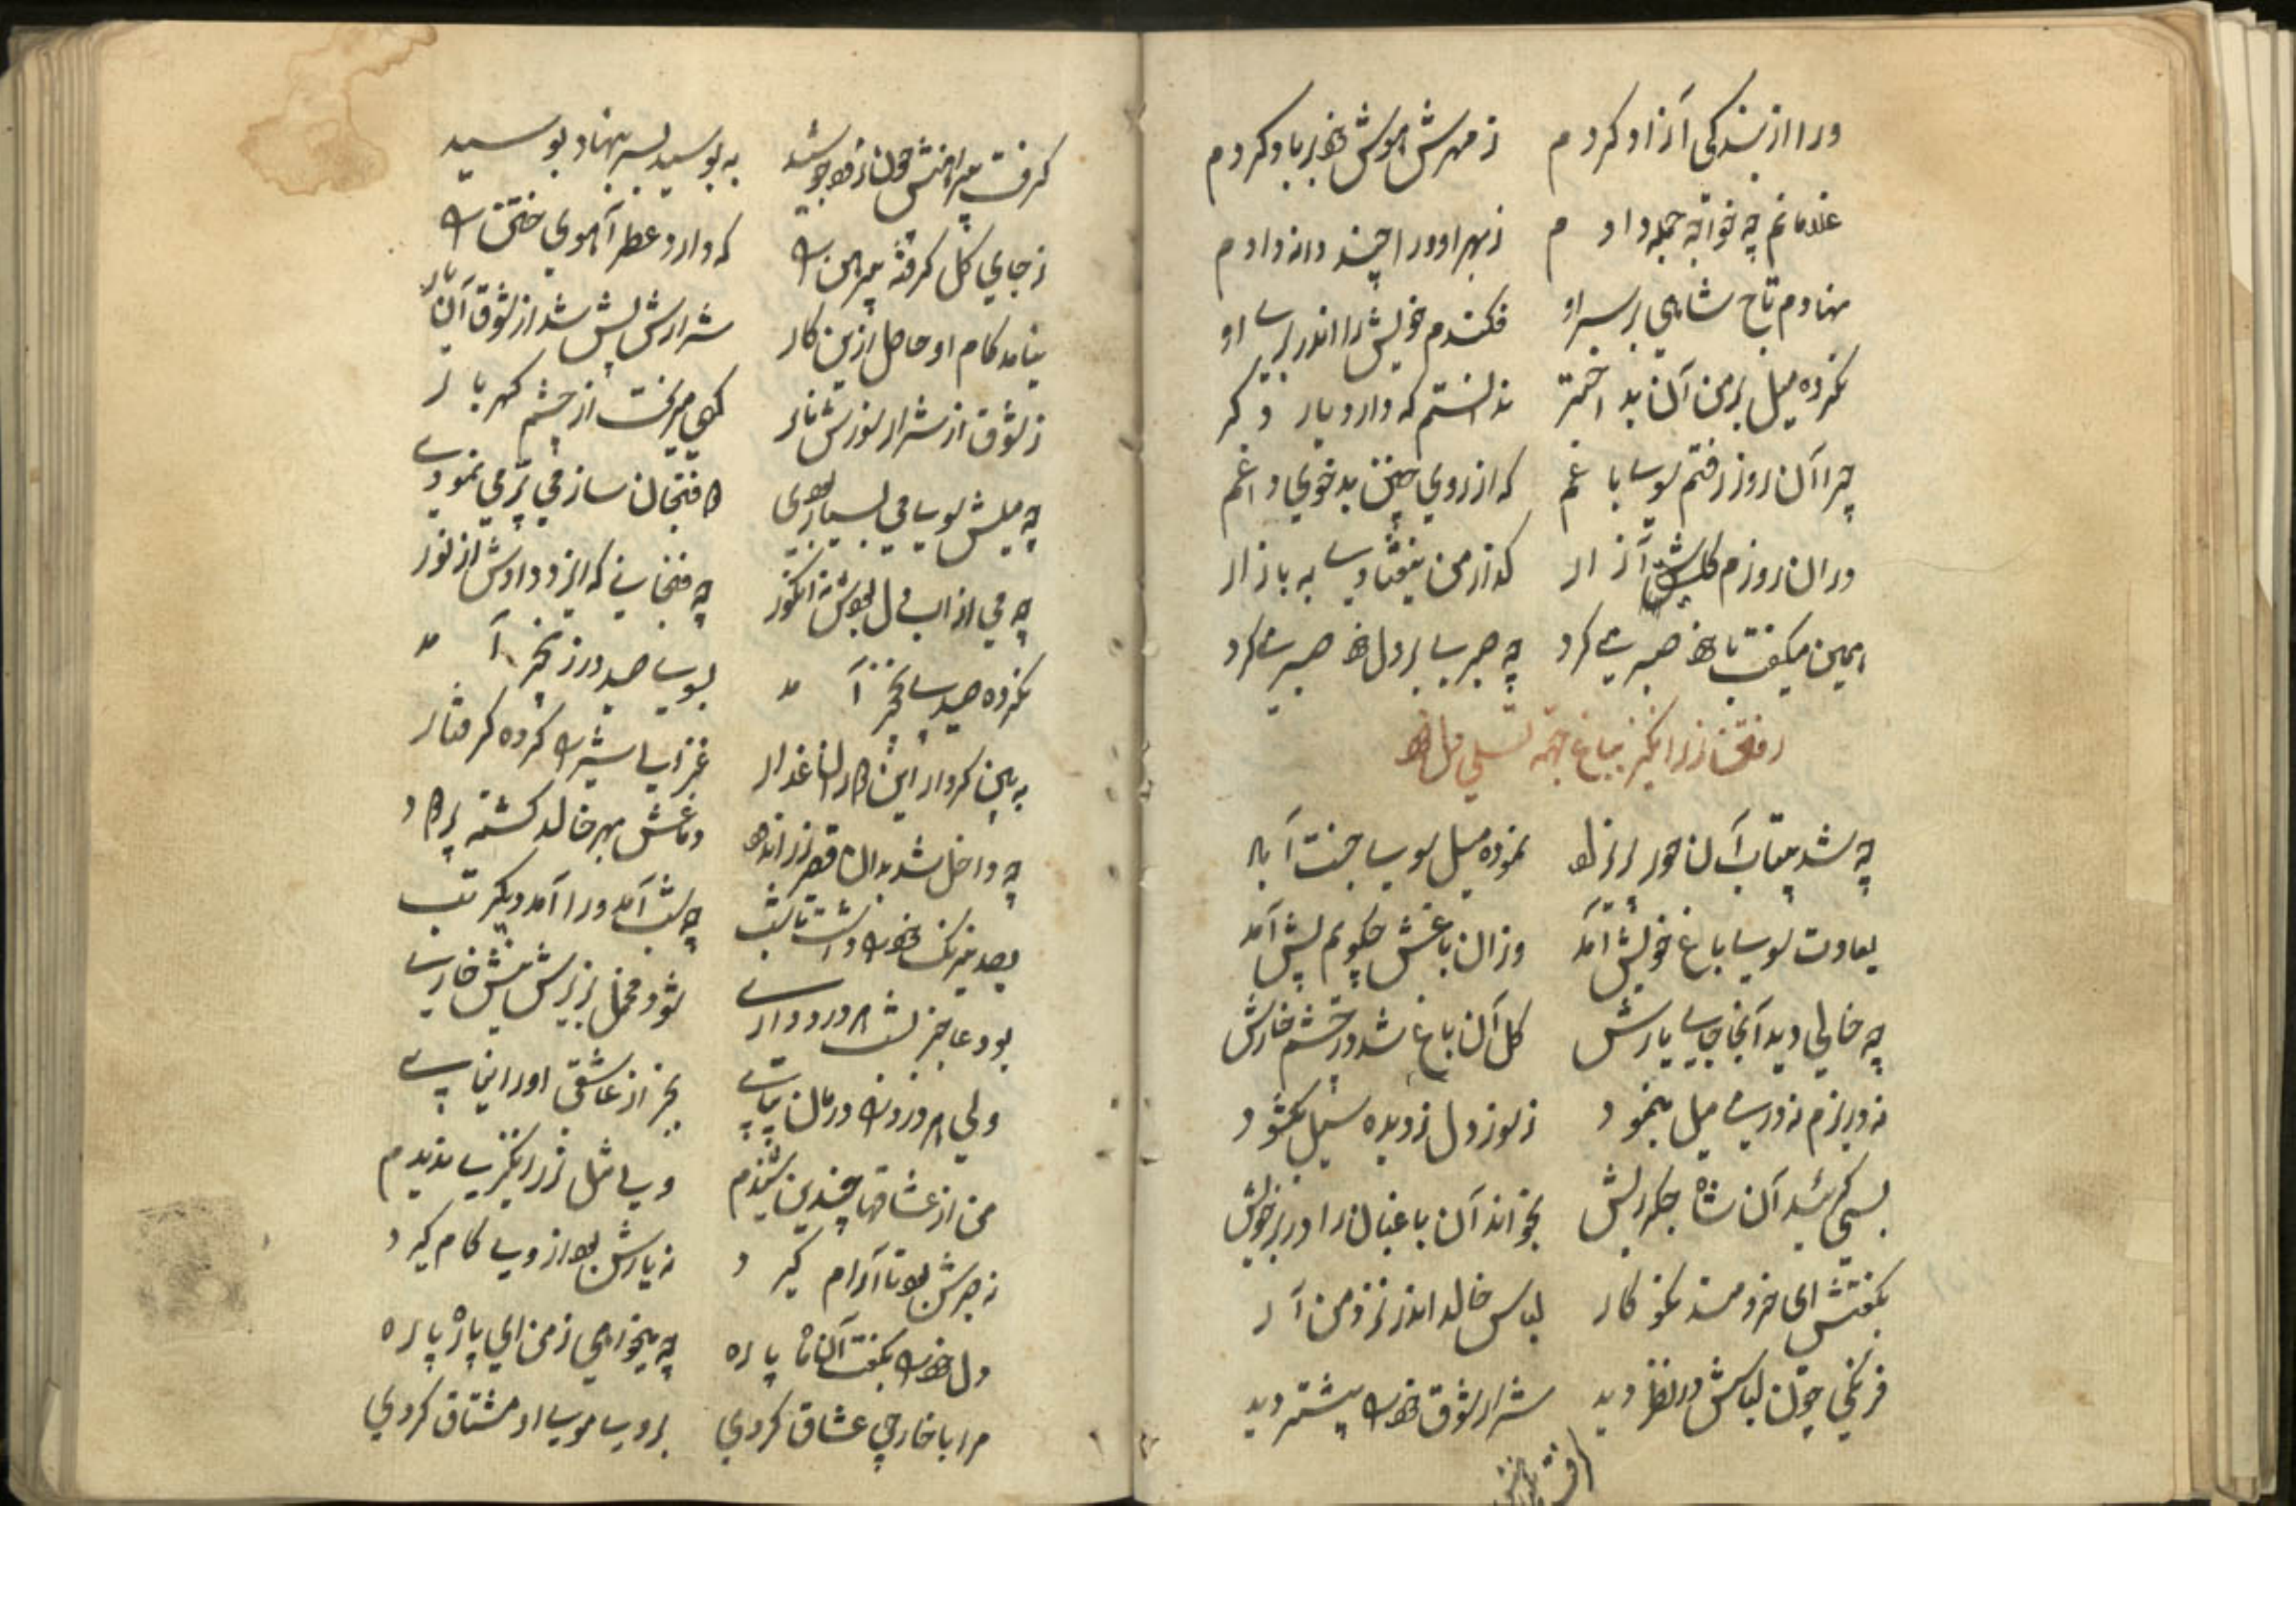 ورا از بندکی آزاد کردم زمهرش هوش خود بر باد کردم
غلامانم چه خواجه جمله دادم ز بهر او ورا چند دانه دادم
نهادم تاج شاهي بر سر او فکندم خویش را اندر بر او
نکرده میل بر من آن بد اختر ندانستم که دارد یار دکر
چرا آن روز رفتم سوی باغم که از روي چنین بدخوي داغم
در آن روزم آزار که از من بیفتادی به بازار
همین میکفت تا خود صبر می کرد چه جبری بر دل خود صبر می کرد
رفتن زرانکیز بباغ جهة تسلي دل خود
چه شد بیتاب آن حور نموده میل سوی جنت آباد
بعادت سوی باغ خویش آمد وزان باغش چکویم پیش آمد
چه خالي دید آنجا جای یارش کل آن باغ شد در چشم خارش
نه در بزم نه در می میل بنمود ز سوز دل ز دیده سیل بکشود
بسي کرئید آن شاه جکرریش بخواند آن باغبان را در بر خویش
بکفتش ای خردمند نکوکار لباس خالد اندر نزد من آر
فرنکي چون لباسش در نظر دید شرار شوق خود بیشتر دید
کرفت پیراهنش چون زو جو شد به بوسید بسر بنهاد بوسید
ز جاي کل کرفته پیرهن را که دارد عطر آهوي ختن را
نیامد کام او حاصل ازین کار شرارش بیش شد از شوق آن یار
ز شوق از شرار سوزش نار کهي میریخت از چشم کهربار
چه میلش سوی مي بسیار بودی فنجان ساز مي پر مي نمودی
چه مي از آب دل بودش نه انکور چه فنجانی که ایزد دادش از نور
نکرده صیدی نخچیر آمد بسوی صید در زنجیر آمد
به بین کردار این کار غدار غزالی شیر را کرده کرفتار
چه داخل شد بدان قصر دماغش بهر خالد کشته پر باد
بصد نیرنک خود را داشت تا شب چه شب آمد ورا آمد دیکر تب
بود عاجز بشب هر درد داری شود مخمل بزیرش نیش خاری
ولي هر درد را درمان بیابی بجز از عاشقی او را نیابی
من از عشاقها چندین شنیدم ولی مثل زرانکیزی ندیدم
نه صبرش بود تا آرام کیرد نه یارش بود از وی کام کیرد
دل خود را بکفت آن ماه پاره چه میخواهي ز من ای پاره پاره
مرا با خارجي عشاق کردي بروی سوی او مشتاق کردي